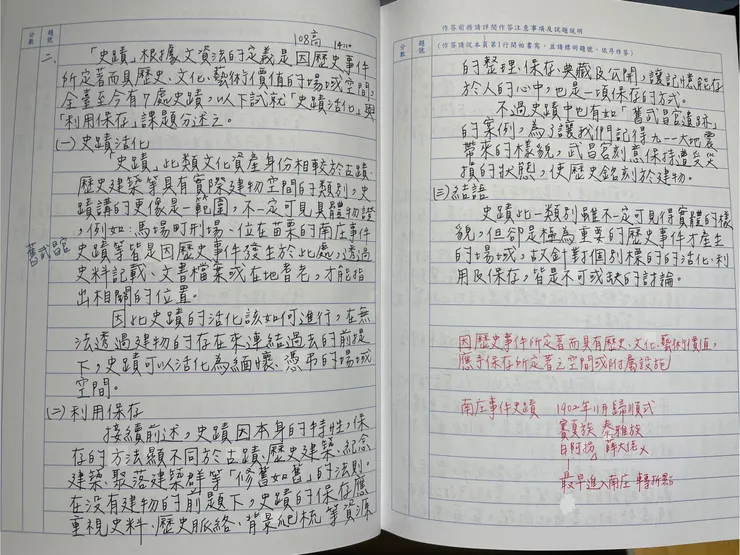 分數
題號
108高
二、
「史蹟」根據文資法的定義是因歷史事件
所定著而具歷史、文化、藝術價值的場域空間,
全臺至今有7處史蹟,以下試就「史蹟活化」與
「利用保存」課題分述之。
(一)史蹟活化
「史蹟」此類文化資產身份相較於古蹟、
歷史建築等具有實際建物空間的類別,史
蹟講的更像是一範圍,不一定可見具體物證
,例如:馬場町刑場、位在苗栗的南庄事件
舊武昌宮
史蹟等皆是因歷史事件發生於此處,透過
史料記載、文書檔案或在地耆老,才能指
出相關的位置。
因此史蹟的活化該如何進行,在無
法透過建物的存在來連結過去的前提
下,史蹟可以活化為緬懷、憑弔的場域
空間。
(二)利用保存
接續前述,史蹟因本身的特性,保
存的方法顯不同於古蹟、歷史建築、紀念
建築、聚落建築群等「修舊如舊」的法則。
在沒有建物的前題下,史蹟的保存應
重視史料、歷史脈絡、背景爬梳等資源
作答前務請詳閱作答注意事項及試題說明
分數
題號
(作答請從本頁第1行開始書寫,並請標明題號,依序作答)
的整理、保存、典藏及公開,讓記憶能存
於人的心中,也是一項保存的方式。
不過史蹟中也有如「舊武昌宮遺跡」
的案例,為了讓我們記得九二一大地震
帶來的樣貌,武昌宮刻意保持遭受災
損的狀態,使歷史銘刻於建物。
(三)結語
史蹟此一類別雖不一定可見得實體的樣
貌,但卻是極為重要的歷史事件才產生
的場域,故針對個別標的的活化、利
用及保存,皆是不可或缺的討論。
因歷史事件所定著而具有歷史、文化、藝術價值,
應予保存所定著之空間或附屬設施
南庄事件史蹟 1902年11月歸順式
賽夏族 泰雅族
日阿拐
最早進入南庄 轉折點